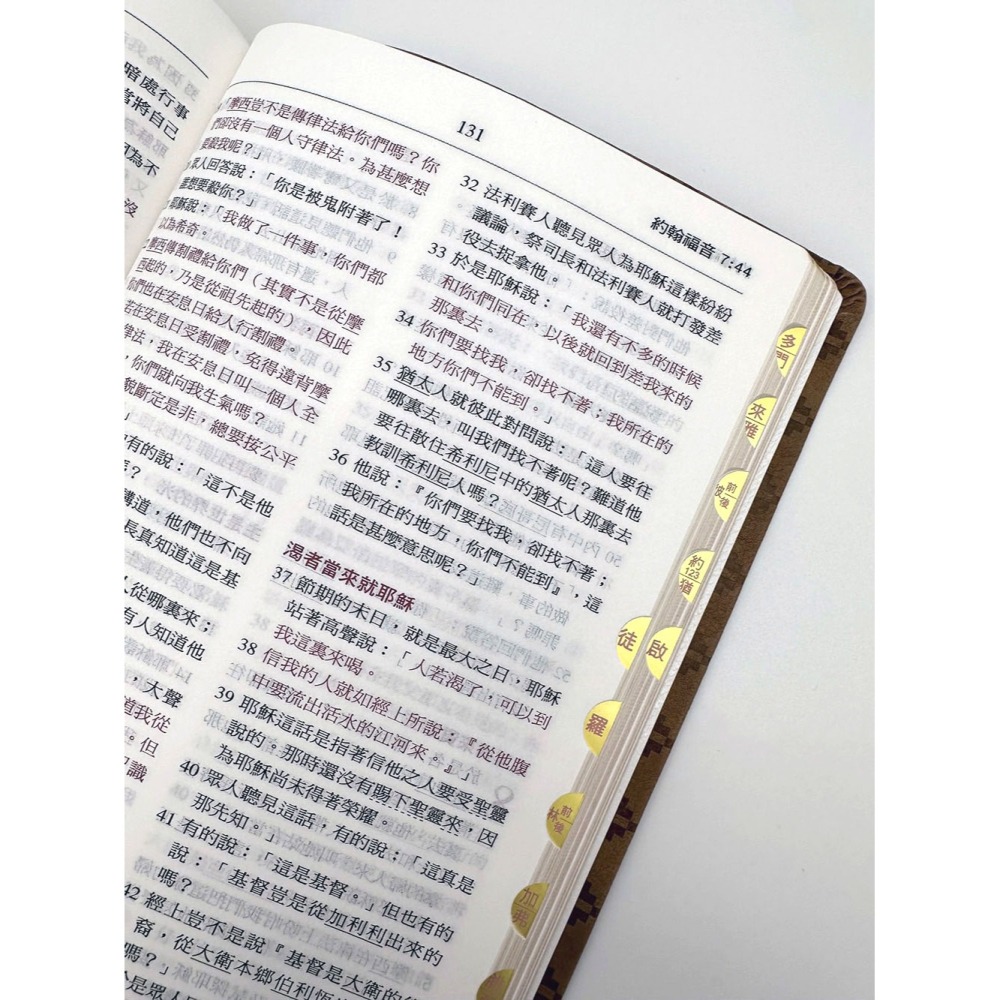 暗處行事
當將自己
因為不
沒
131
約翰福音 7:44
摩西豈不是傳律法給你們嗎？你
們卻沒有一個人守律法。為甚麼想
要殺我呢？」
眾人回答說：「你是被鬼附著了！
誰想要殺你？」
耶穌說：「我做了一件事，你們都
以為希奇。
摩西傳割禮給你們（其實不是從摩
西起的，乃是從祖先起的），因此
你們也在安息日給人行割禮。
若在安息日受割禮，免得違背摩
律法，我在安息日叫一個人全
，你們就向我生氣嗎？
貌斷定是非，總要按公平
有的說：「這不是他
嗎？
講道，他們也不向
長真知道這是基
從哪裏來；
有人知道他
，大聲
道我從
。但
識
32 法利賽人聽見眾人為耶穌這樣紛紛
議論，祭司長和法利賽人就打發差
役去捉拿他。
33 於是耶穌說：「我還有不多的時候
和你們同在，以後就回到差我來的
那裏去。
34 你們要找我，卻找不著；我所在的
地方你們不能到。」
35 猶太人就彼此對問說：「這人要往
哪裏去，叫我們找不著呢？難道他
要往散住希利尼中的猶太人那裏去
教訓希利尼人嗎？
36 他說：『你們要找我，卻找不著；
我所在的地方，你們不能到』，這
話是甚麼意思呢？」
渴者當來就耶穌
37 節期的末日，就是最大之日，耶穌
站著高聲說：「人若渴了，可以到
我這裏來喝。
38 信我的人就如經上所說：『從他腹
中要流出活水的江河來。』」
39 耶穌這話是指著信他之人要受聖靈
說的。那時還沒有賜下聖靈來，因
為耶穌尚未得著榮耀。
40 眾人聽見這話，有的說：「這真是
那先知。」
41 有的說：「這是基督。」但也有的
說：「基督豈是從加利利出來的
嗎？
42 經上豈不是說『基督是大衛的後
裔，從大衛本鄉伯利恆
多
門
來
雅
前
彼後
約
123
猶
徒
啟
羅
前
林後
加
弗